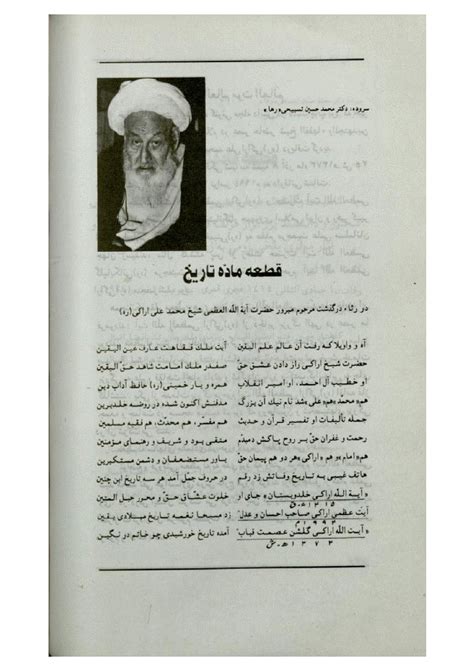 سروده: دکتر محمد حسین تسبیحی «رها»
قطعه ماده تاریخ
در رثاء درگذشت مرحوم مبرور حضرت آیة الله العظمی شیخ محمد علی اراکی (ره)
آه و واویلا که رفت آن عالم علم الیقین آیت ملک فقاهت عارف عین الیقین
حضرت شیخ اراکی راز دادن عشق حق صفدر ملک امامت شاهد حق الیقین
او خطیب آل احمد، او امیر انقلاب همره و یار خمینی (ره) حافظ آداب دین
«هم محمد» «هم علی» شد نام نیک آن بزرگ مدفنش اکنون شده در روضه خلدبرین
جمله تألیفات او تفسیر قرآن و حدیث هم مفسر، هم محدث، هم فقیه مسلمین
رحمت و غفران حق بر روح پاکش دمبدم متقی بود و شریف و رهنمای مؤمنین
«هم امام» و هم «اراکی» هر دو هم پیمان حق یاور مستضعفان و دشمن مستکبرین
هاتف غیبی به تاریخ وفاتش زد رقم در حروف جمل آمد هر سه تاریخ این چنین
«آیة الله اراکی خلدوبستان» جای او خلوت عشاق حق و محور حبل المتین
۱۴۱۵ ه‍.ق
آیت عظمی اراکی صاحب احسان و عدل زد مسیحا نغمه تاریخ میلادی یقین
۱۹۹۴ م
«آیت الله اراکی گلشن عصمت قباب» آمد تاریخ خورشیدی چو خاتم در نگین
۱۳۷۳ ه‍.ش